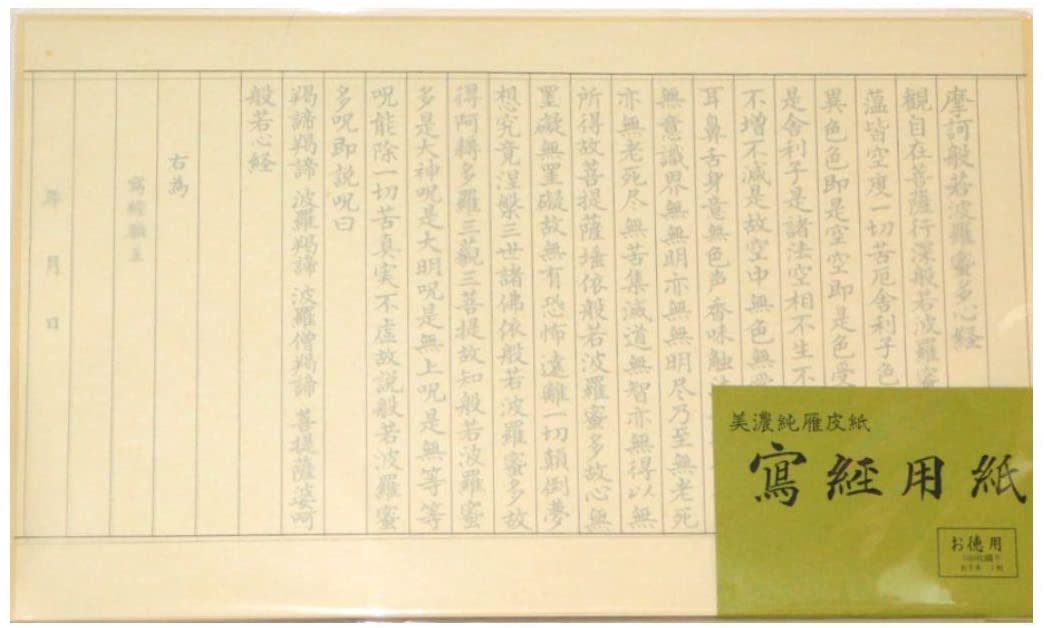 摩訶般若波羅蜜多心経
観自在菩薩行深般若波羅蜜
蕰皆空度一切苦厄舎利子色
異色色即是空空即是色受
是舎利子是諸法空相不生不
不増不減是故空中無色無受
耳鼻舌身意無色声香味触法
無意識界無無明亦無無明尽乃至無老死
亦無老死尽無苦集滅道無智亦無得以無
所得故菩提薩埵依般若波羅蜜多故心無
罣礙無罣礙故無有恐怖遠離一切顛倒夢
想究竟涅槃三世諸佛依般若波羅蜜多故
得阿耨多羅三藐三菩提故知般若波羅蜜
多是大神呪是大明呪是無上呪是無等等
呪能除一切苦真実不虚故説般若波羅蜜
多呪即説呪曰
羯諦羯諦 波羅羯諦 波羅僧羯諦 菩提薩婆訶
般若心経
右為
寫經願主
年 月 日
美濃純雁皮紙
寫経用紙
お徳用